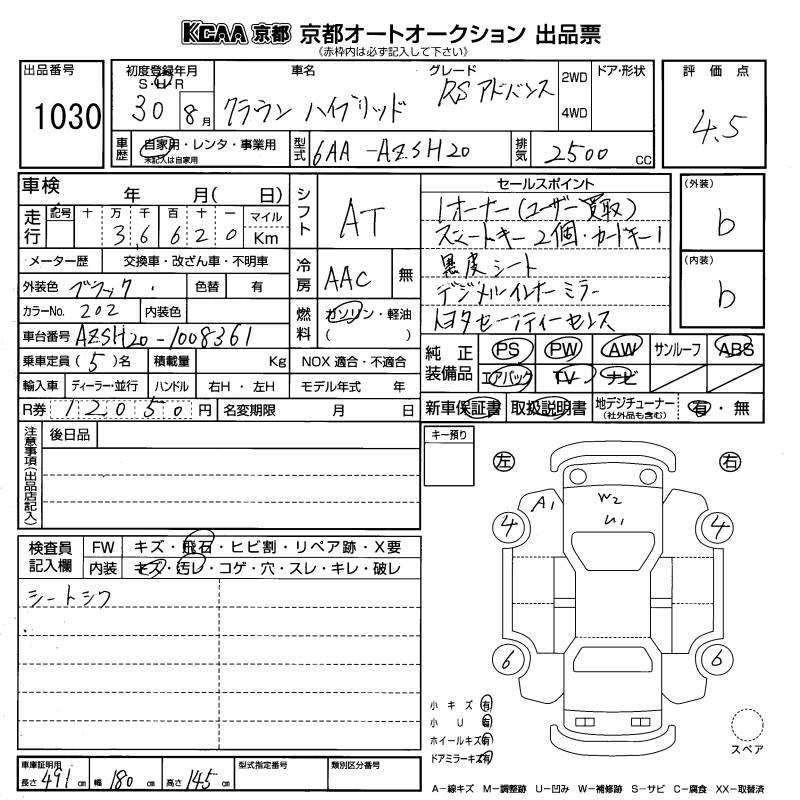 KCAA 京都 京都オートオークション 出品票
《赤枠内は必ず記入して下さい》
出品番号
1030
初度登録年月
S・H・R
30 8 月
車名
クラウン ハイブリッド
グレード
RSアドバンス
2WD
4WD
ドア・形状
評価点
4.5
車歴
自家用・レンタ・事業用
未記入は自家用
型式
6AA-AZSH20
排気
2500 CC
車検 年 月( 日)
走行
記号 十 万 千 百 十 一 マイル
3 6 6 2 0 Km
メーター歴 交換車・改ざん車・不明車
外装色 ブラック 色替 有
カラーNo. 202 内装色
車台番号 AZSH20-1008361
乗車定員 (5)名 積載量 Kg
輸入車 ディーラー・並行 ハンドル 右H・左H
R券 12050円 名変期限 月 日
シフト
AT
冷房
AAC 無
燃料
ガソリン・軽油
( )
NOX 適合・不適合
モデル年式 年
セールスポイント
1オーナー(ユーザー買取)
スマートキー2個・カードキー1
黒皮シート
デジタルインナーミラー
トヨタセーフティーセンス
(外装)
b
(内装)
b
純正装備品
PS PW AW サンルーフ ABS
エアバック TV ナビ
新車保証書 取扱説明書 地デジチューナー(社外品も含む) 有・無
注意事項(出品店記入)
後日品
キー預り
左 右
A1 W2
U1
4 4
6 6
検査員記入欄
FW キズ・飛石・ヒビ割・リペア跡・X要
内装 キズ・汚レ・コゲ・穴・スレ・キレ・破レ
シートシワ
小キズ 有
小U 有
ホイールキズ 有
ドアミラーキズ 有
スペア
車庫証明用
長さ 491 cm 幅 180 cm 高さ 145 cm
型式指定番号
類別区分番号
A−線キズ M−調整跡 U−凹み W−補修跡 S−サビ C−腐食 XX−取替済